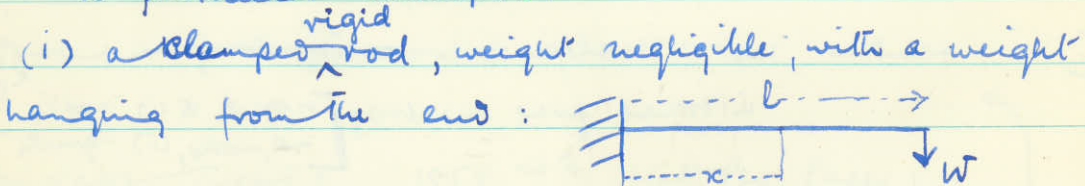 (i) a clamped rigid rod, weight negligible, with a weight
hanging from the end :
l
x
W